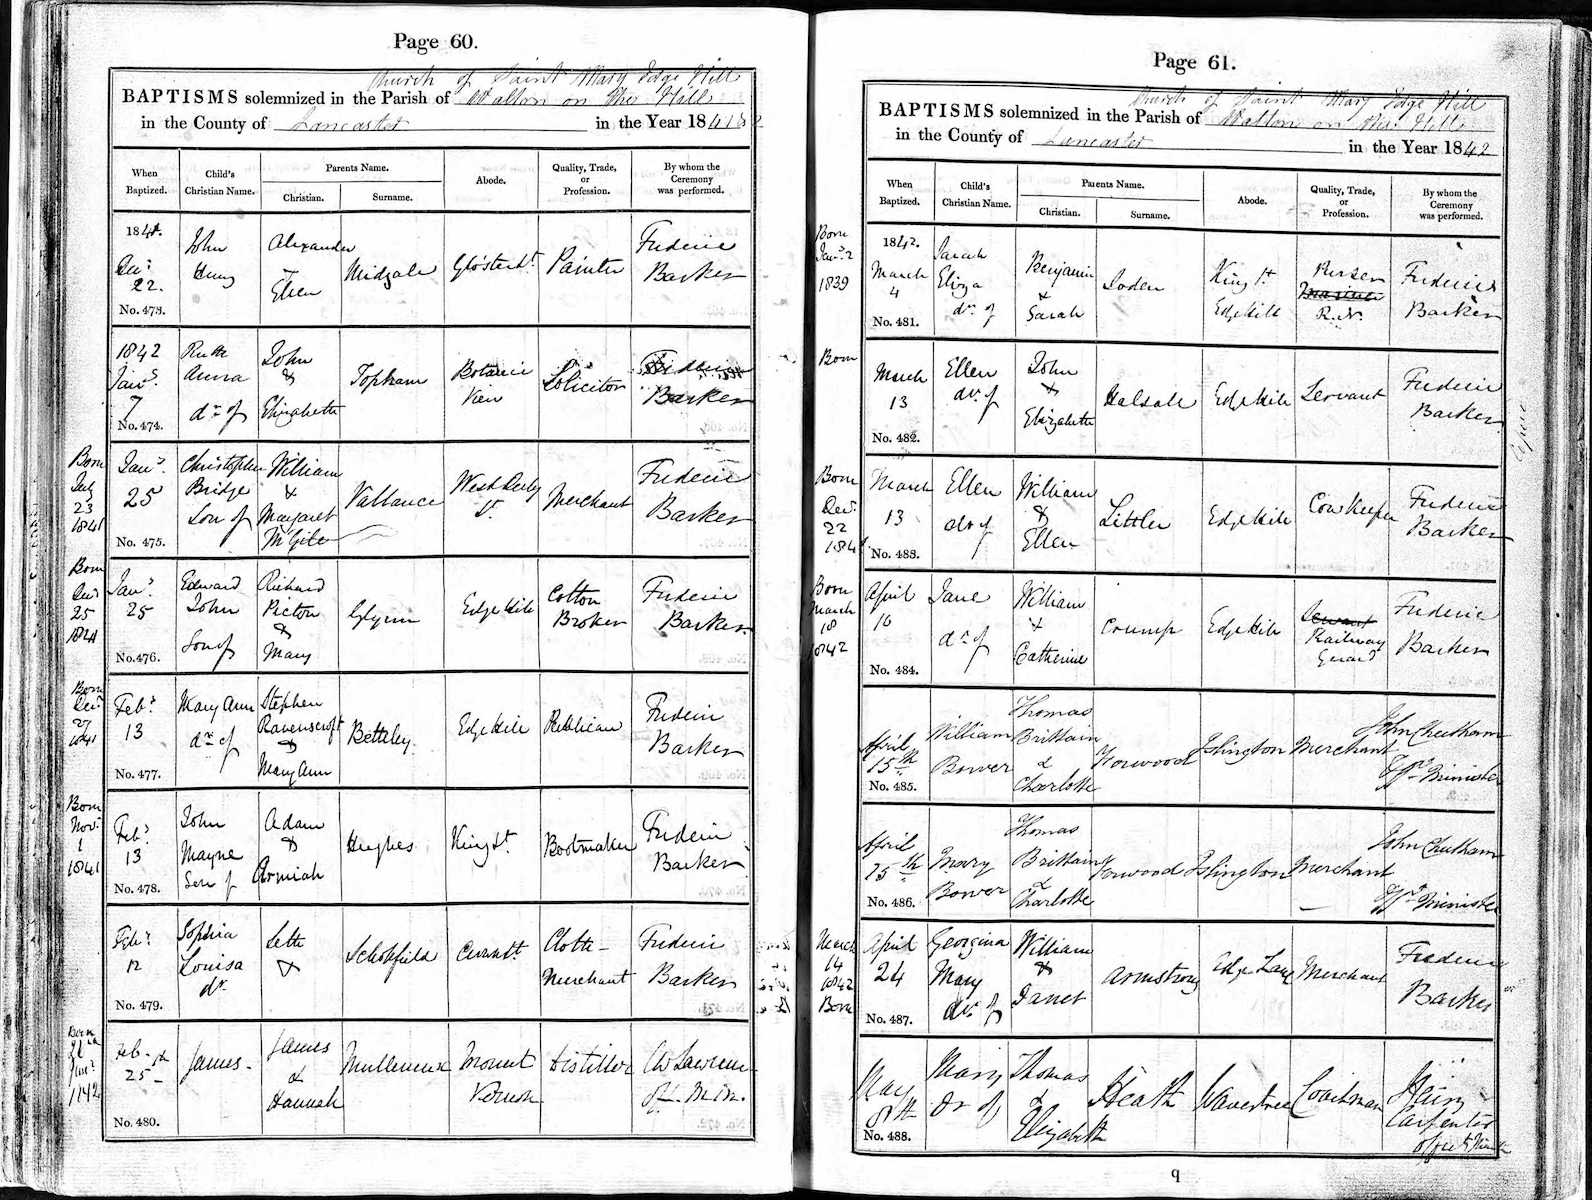 Page 60.
Church of Saint Mary Edge Hill
BAPTISMS solemnized in the Parish of Walton on the Hill
in the County of Lancaster in the Year 1841 & 2
When Baptized.
Child's Christian Name.
Parents Name.
Christian.
Surname.
Abode.
Quality, Trade, or Profession.
By whom the Ceremony was performed.
1841.
Decr 22.
No. 473.
John Henry
Alexander
Ellen
Midgale
Glo'ster St
Painter
Frederic Barker
1842
Jany
7
No. 474.
Ruth Anna
dr of
John
&
Elizabeth
Topham
Botanic View
Solicitor
Frederic Barker
Born
July
23
1841
Jany
25
No. 475.
Christopher
Bridge
Son of
William
&
Margaret
Vallance
West Derby
St
Merchant
Frederic Barker
Born
Decr
25
1841
Jany
25
No. 476.
Edward
John
Son of
Richard
Picton
&
Mary
Glynn
Edge Hill
Cotton
Broker
Frederic Barker
Born
Decr
27
1841
Feby
13
No. 477.
Mary Ann
dr of
Stephen
Ravenscroft
&
Mary Ann
Betteley
Edge Hill
Publican
Frederic Barker
Born
Novr
1
1841
Feby
13
No. 478.
John
Mayne
Son of
Adam
&
Hughes
King St
Bootmaker
Frederic Barker
Feby
12
No. 479.
Sophia
Louisa
dr
Seth
&
Schofield
Cloth
Merchant
Frederic Barker
Born
1842
Feb.
25th
No. 480.
James
James
&
Hannah
Mullineux
Mount
Vernon
Distiller
Off. Min.
Page 61.
Church of Saint Mary Edge Hill
BAPTISMS solemnized in the Parish of Walton on the Hill
in the County of Lancaster in the Year 1842
When Baptized.
Child's Christian Name.
Parents Name.
Christian.
Surname.
Abode.
Quality, Trade, or Profession.
By whom the Ceremony was performed.
Born
Jany 2
1839
1842.
March
4
No. 481.
Sarah
Eliza
dr of
Benjamin
&
Sarah
Loden
King St
Edge Hill
Purser
Mariner
R.N.
Frederic
Barker
Born
March
13
No. 482.
Ellen
dr of
John
&
Elizabeth
Halsall
Edge Hill
Servant
Frederic
Barker
Born
Decr
22
1841
March
13
No. 483.
Ellen
dr of
William
&
Ellen
Littler
Edge Hill
Cow Keeper
Frederic
Barker
Born
March
18
1842
April
10
No. 484.
Jane
dr of
William
&
Catherine
Crump
Edge Hill
Servant
Railway
Guard
Frederic
Barker
April
15th
No. 485.
William
Bower
Thomas
Brittain
&
Charlotte
Forwood
Islington
Merchant
John Cheetham
Offg Minister
April
15th
No. 486.
Mary
Bower
Thomas
Brittain
&
Charlotte
Forwood
Islington
Merchant
John Cheetham
Offg Minister
March
14
1842
Born
April
24
No. 487.
Georgina
Mary
dr of
William
&
Janet
Armstrong
Edge Lane
Merchant
Frederic
Barker
May
8th
No. 488.
Mary
Dr of
Thomas
&
Elizabeth
Heath
Wavertree
Coachman
Carpenter
9